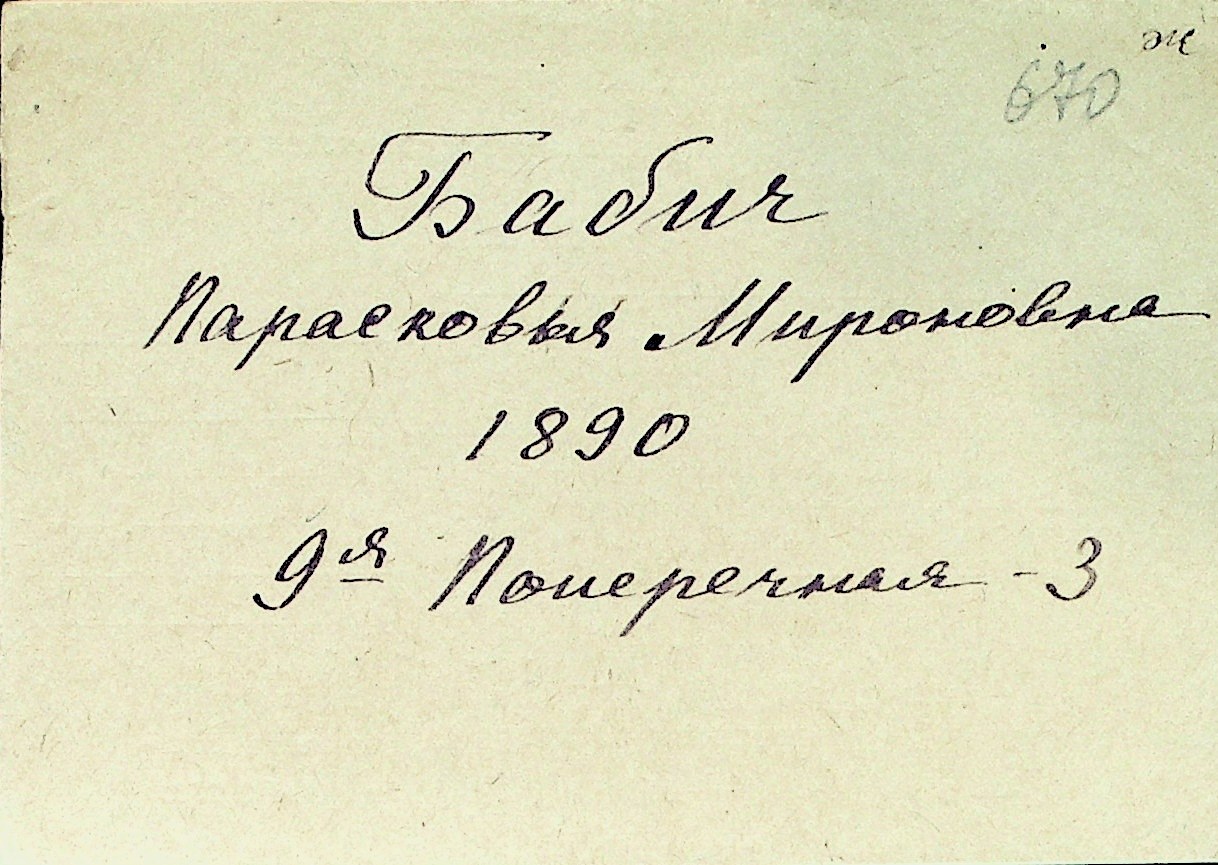 ж
670
Бабич
Парасковья Мироновна
1890
9я Поперечная - 3